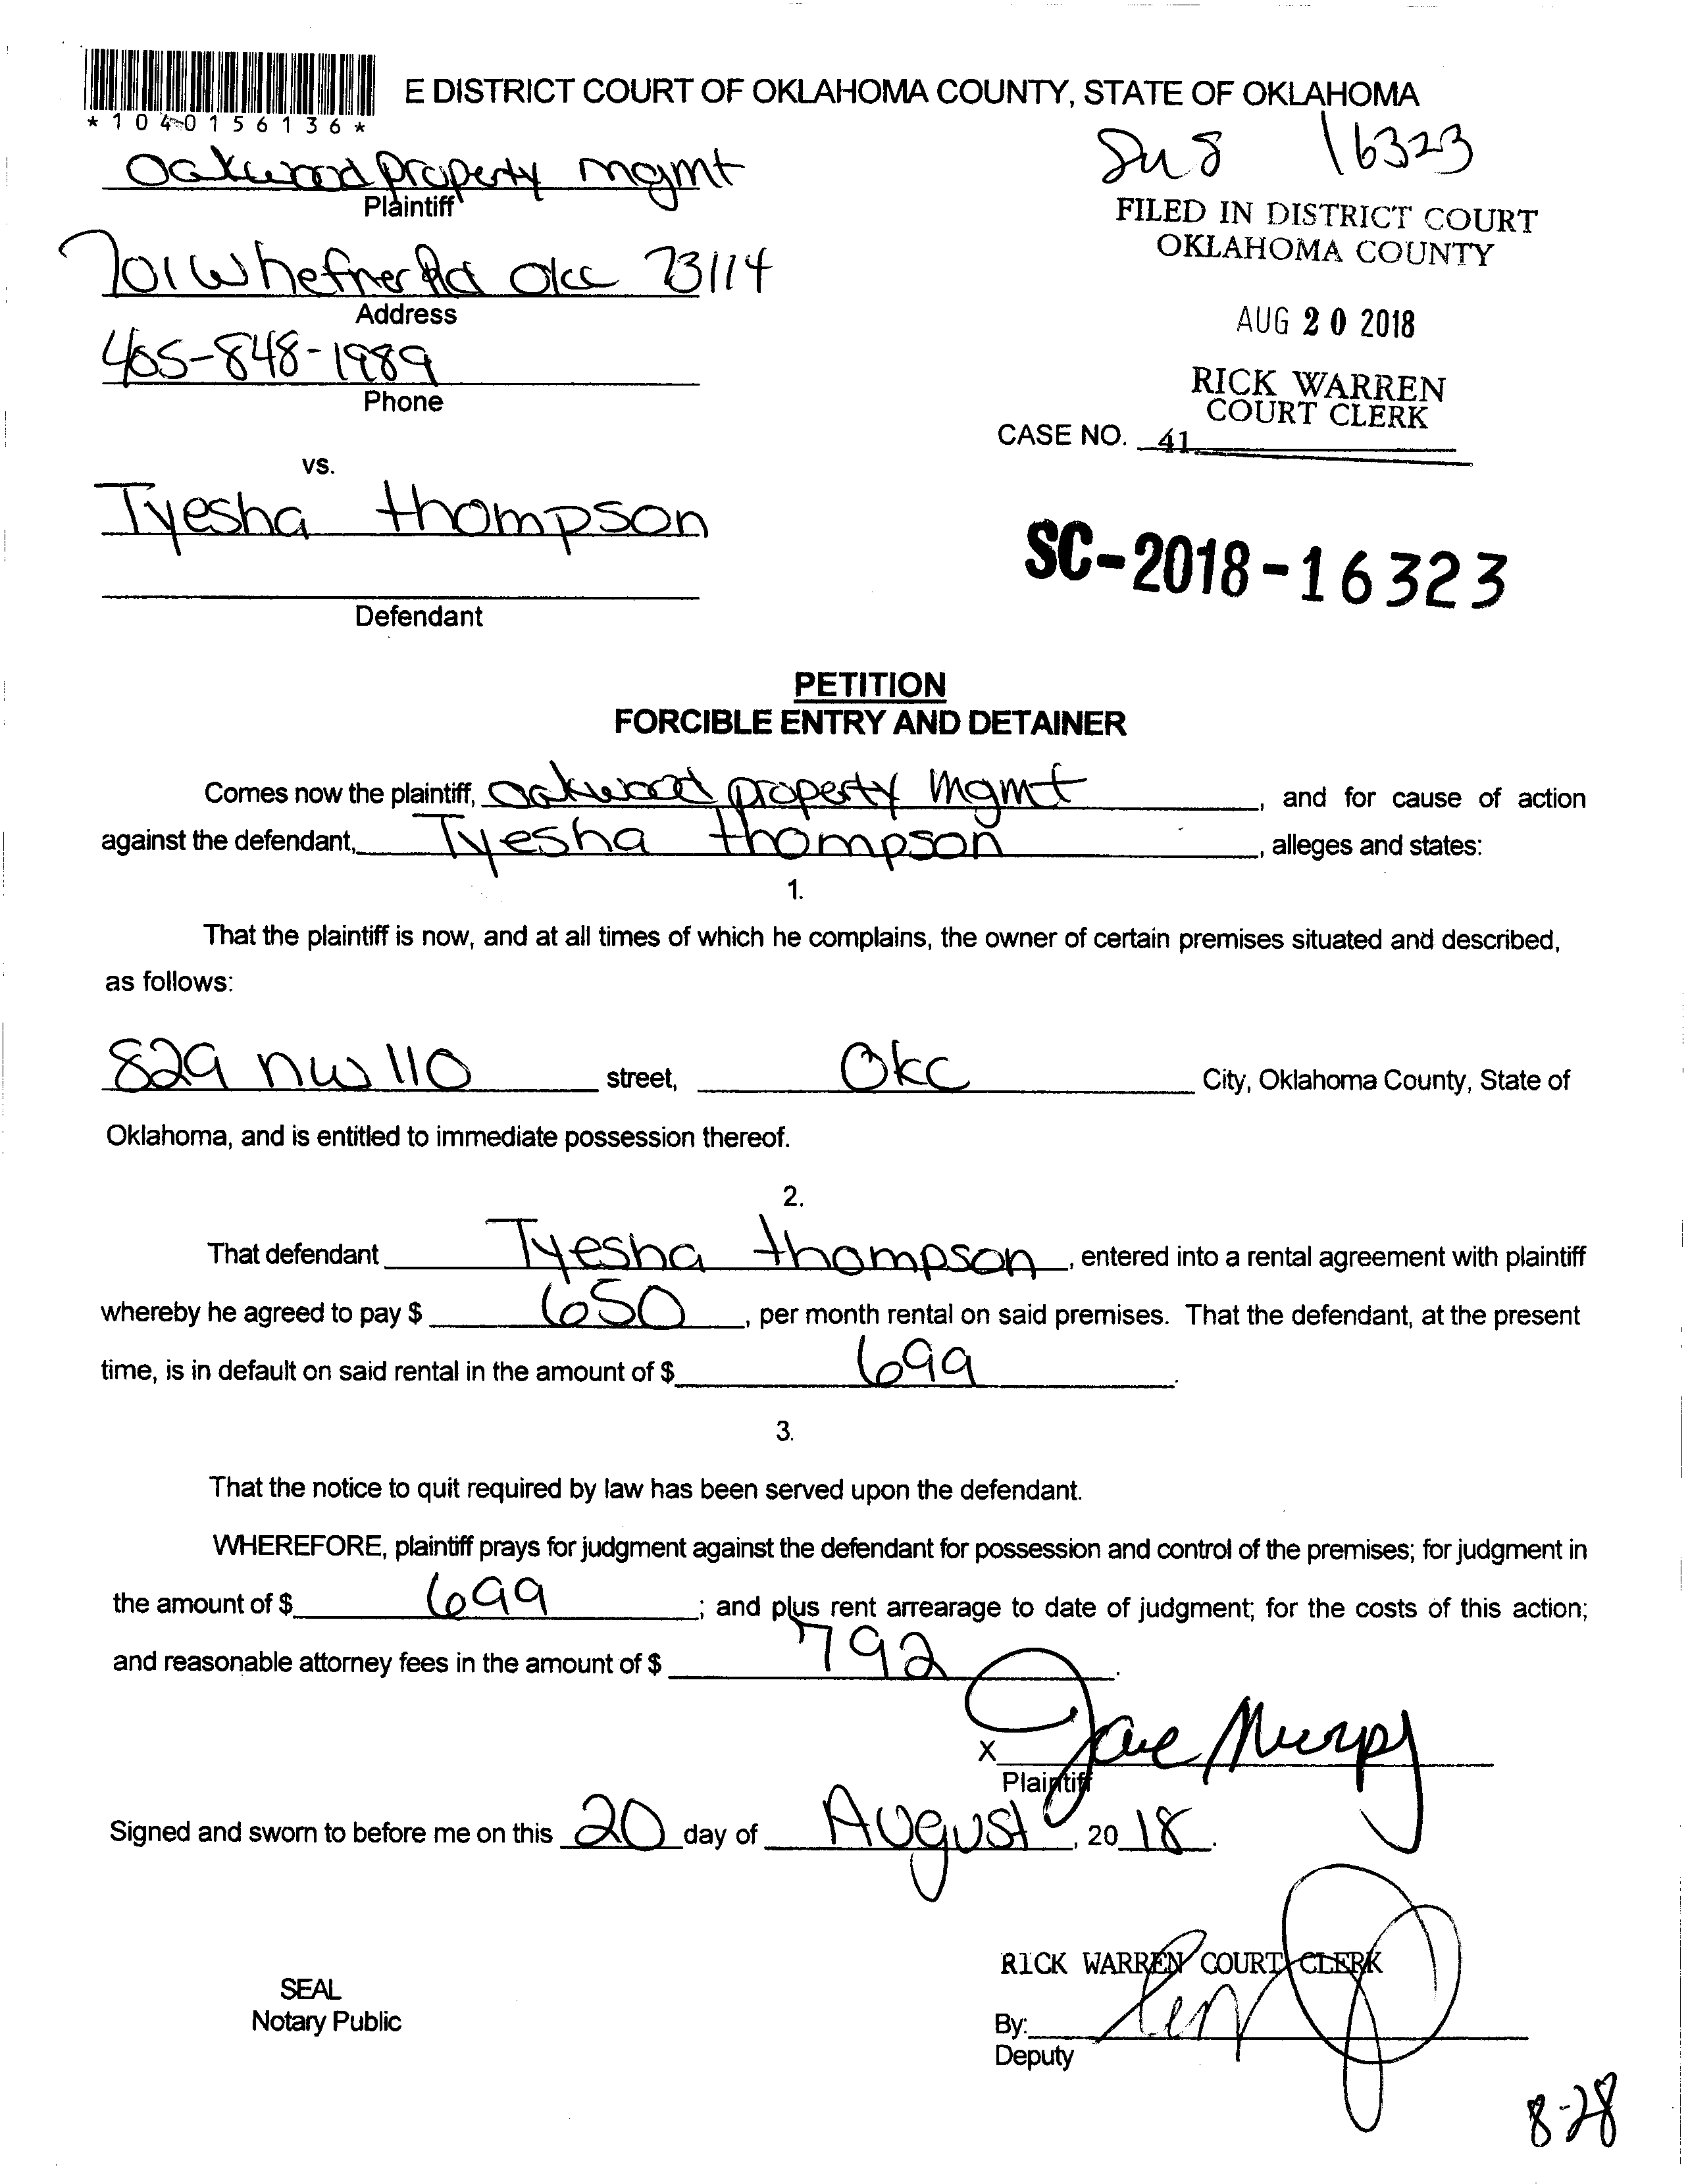 E DISTRICT COURT OF OKLAHOMA COUNTY, STATE OF OKLAHOMA
*1040156136*
16323
Oakwood property mgmt
Plaintiff
FILED IN DISTRICT COURT
OKLAHOMA COUNTY
701 W hefner Rd Okc 73114
Address
AUG 20 2018
405-848-1989
Phone
RICK WARREN
COURT CLERK
CASE NO. 41
vs.
Tyesha thompson
SC-2018-16323
Defendant
PETITION
FORCIBLE ENTRY AND DETAINER
Comes now the plaintiff, oakwood property mgmt, and for cause of action
against the defendant, Tyesha thompson, alleges and states:
1.
That the plaintiff is now, and at all times of which he complains, the owner of certain premises situated and described,
as follows:
829 nw 110 street, Okc City, Oklahoma County, State of
Oklahoma, and is entitled to immediate possession thereof.
2.
That defendant Tyesha thompson, entered into a rental agreement with plaintiff
whereby he agreed to pay $ 650, per month rental on said premises. That the defendant, at the present
time, is in default on said rental in the amount of $ 699.
3.
That the notice to quit required by law has been served upon the defendant.
WHEREFORE, plaintiff prays for judgment against the defendant for possession and control of the premises; for judgment in
the amount of $ 699; and plus rent arrearage to date of judgment; for the costs of this action;
and reasonable attorney fees in the amount of $ 792.
X
Plaintiff
Signed and sworn to before me on this 20 day of August, 2018.
RICK WARREN COURT CLERK
SEAL
Notary Public
By:
Deputy
8-28